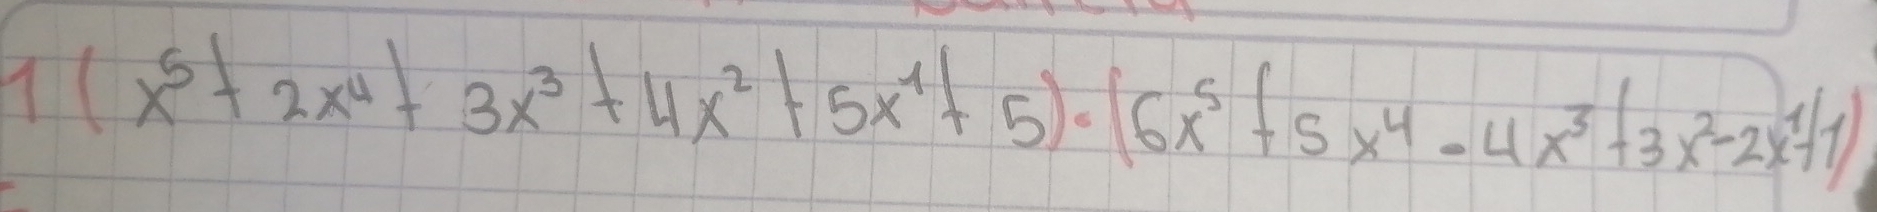 1 (x⁵ + 2x⁴ + 3x³ + 4x² + 5x¹ + 5) · (6x⁵ + 5x⁴ - 4x³ + 3x² - 2x¹ + 1)